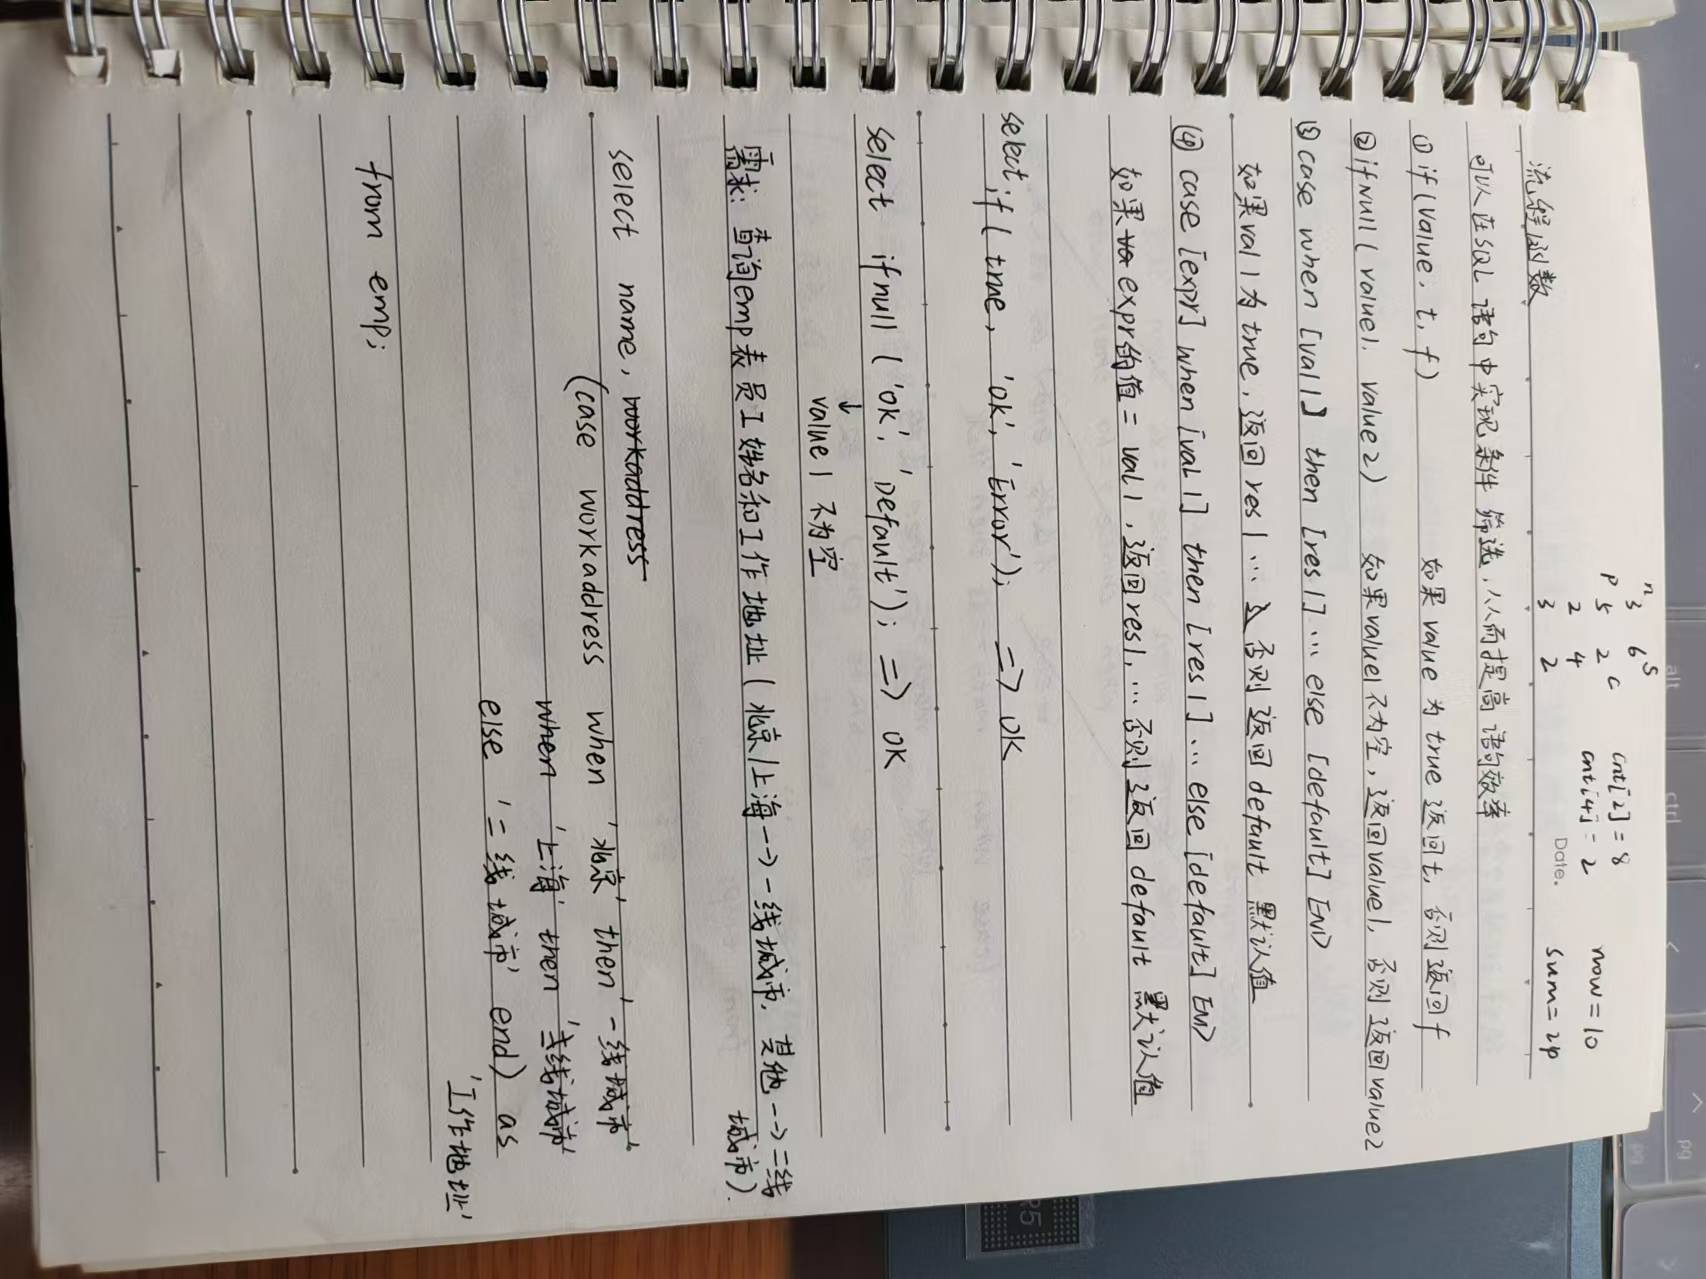 alt ctrl pg
pg
n 3 6 S
P 5 2 C cnt[2] = 8
2 4 cnt[4] = 2 now = 10
3 2 Date. sum = 24
流程函数
可以在SQL 语句中实现条件 筛选,从而提高 语句效率
① if(value, t, f) 如果 value 为 true 返回t, 否则返回f
② ifnull( value1, value2) 如果value1不为空,返回value1, 否则返回value2
③ case when [val1] then [res1] ... else [default] END
如果val1为true,返回 res1 ... 否则返回 default 默认值
④ case [expr] when [val1] then [res1] ... else [default] END
如果 va expr的值 = val1 ,返回res1, ... 否则返回 default 默认值
select if( true, 'OK', 'Error'); => OK
select ifnull ('OK', 'Default'); => OK
↓
value1 不为空
需求: 查询emp表员工姓名和工作地址(北京/上海--> 一线城市, 其他 --> 二线
城市).
select name, workaddress
(case workaddress when '北京' then '一线城市'
when '上海' then '一线城市'
else '二线城市' end) as
'工作地址'
from emp;